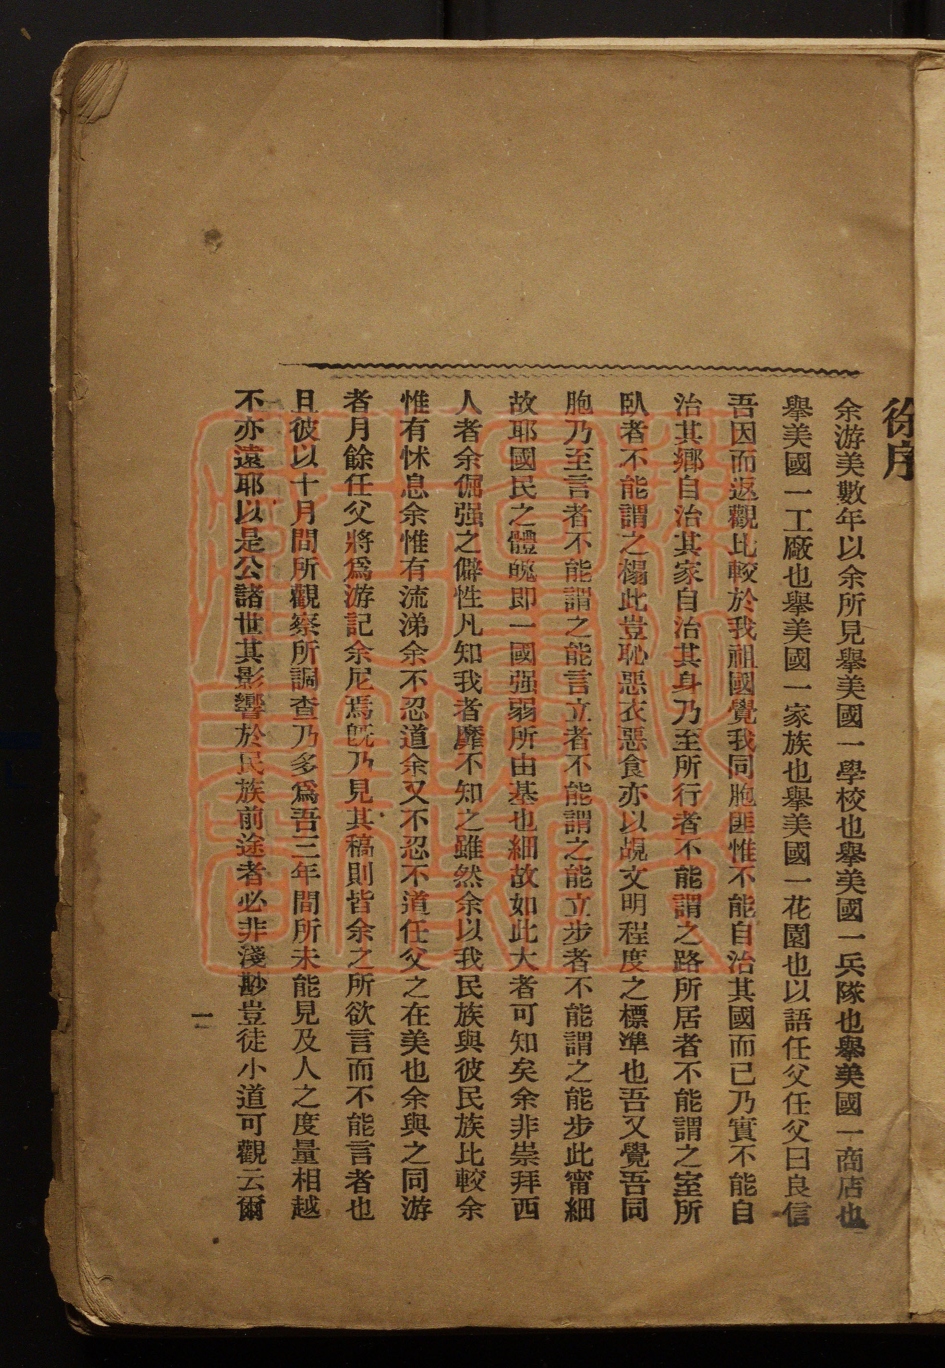 徐序
余游美數年以余所見舉美國一學校也舉美國一兵隊也舉美國一商店也
舉美國一工廠也舉美國一家族也舉美國一花園也以語任父任父曰良信
吾因而返觀比較於我祖國覺我同胞匪惟不能自治其國而已乃實不能自
治其鄉自治其家自治其身乃至所行者不能謂之路所居者不能謂之室所
臥者不能謂之榻此豈恥惡衣惡食亦以覘文明程度之標準也吾又覺吾同
胞乃至言者不能謂之能言立者不能謂之能立步者不能謂之能步此甯細
故耶國民之體魄即一國强弱所由基也細故如此大者可知矣余非崇拜西
人者余倔强之僻性凡知我者靡不知之雖然余以我民族與彼民族比較余
惟有怵息余惟有流涕余不忍道余又不忍不道任父之在美也余與之同游
者月餘任父將爲游記余尼焉旣乃見其稿則皆余之所欲言而不能言者也
且彼以十月間所觀察所調查乃多爲吾三年間所未能見及人之度量相越
不亦遠耶以是公諸世其影響於民族前途者必非淺尠豈徒小道可觀云爾
一